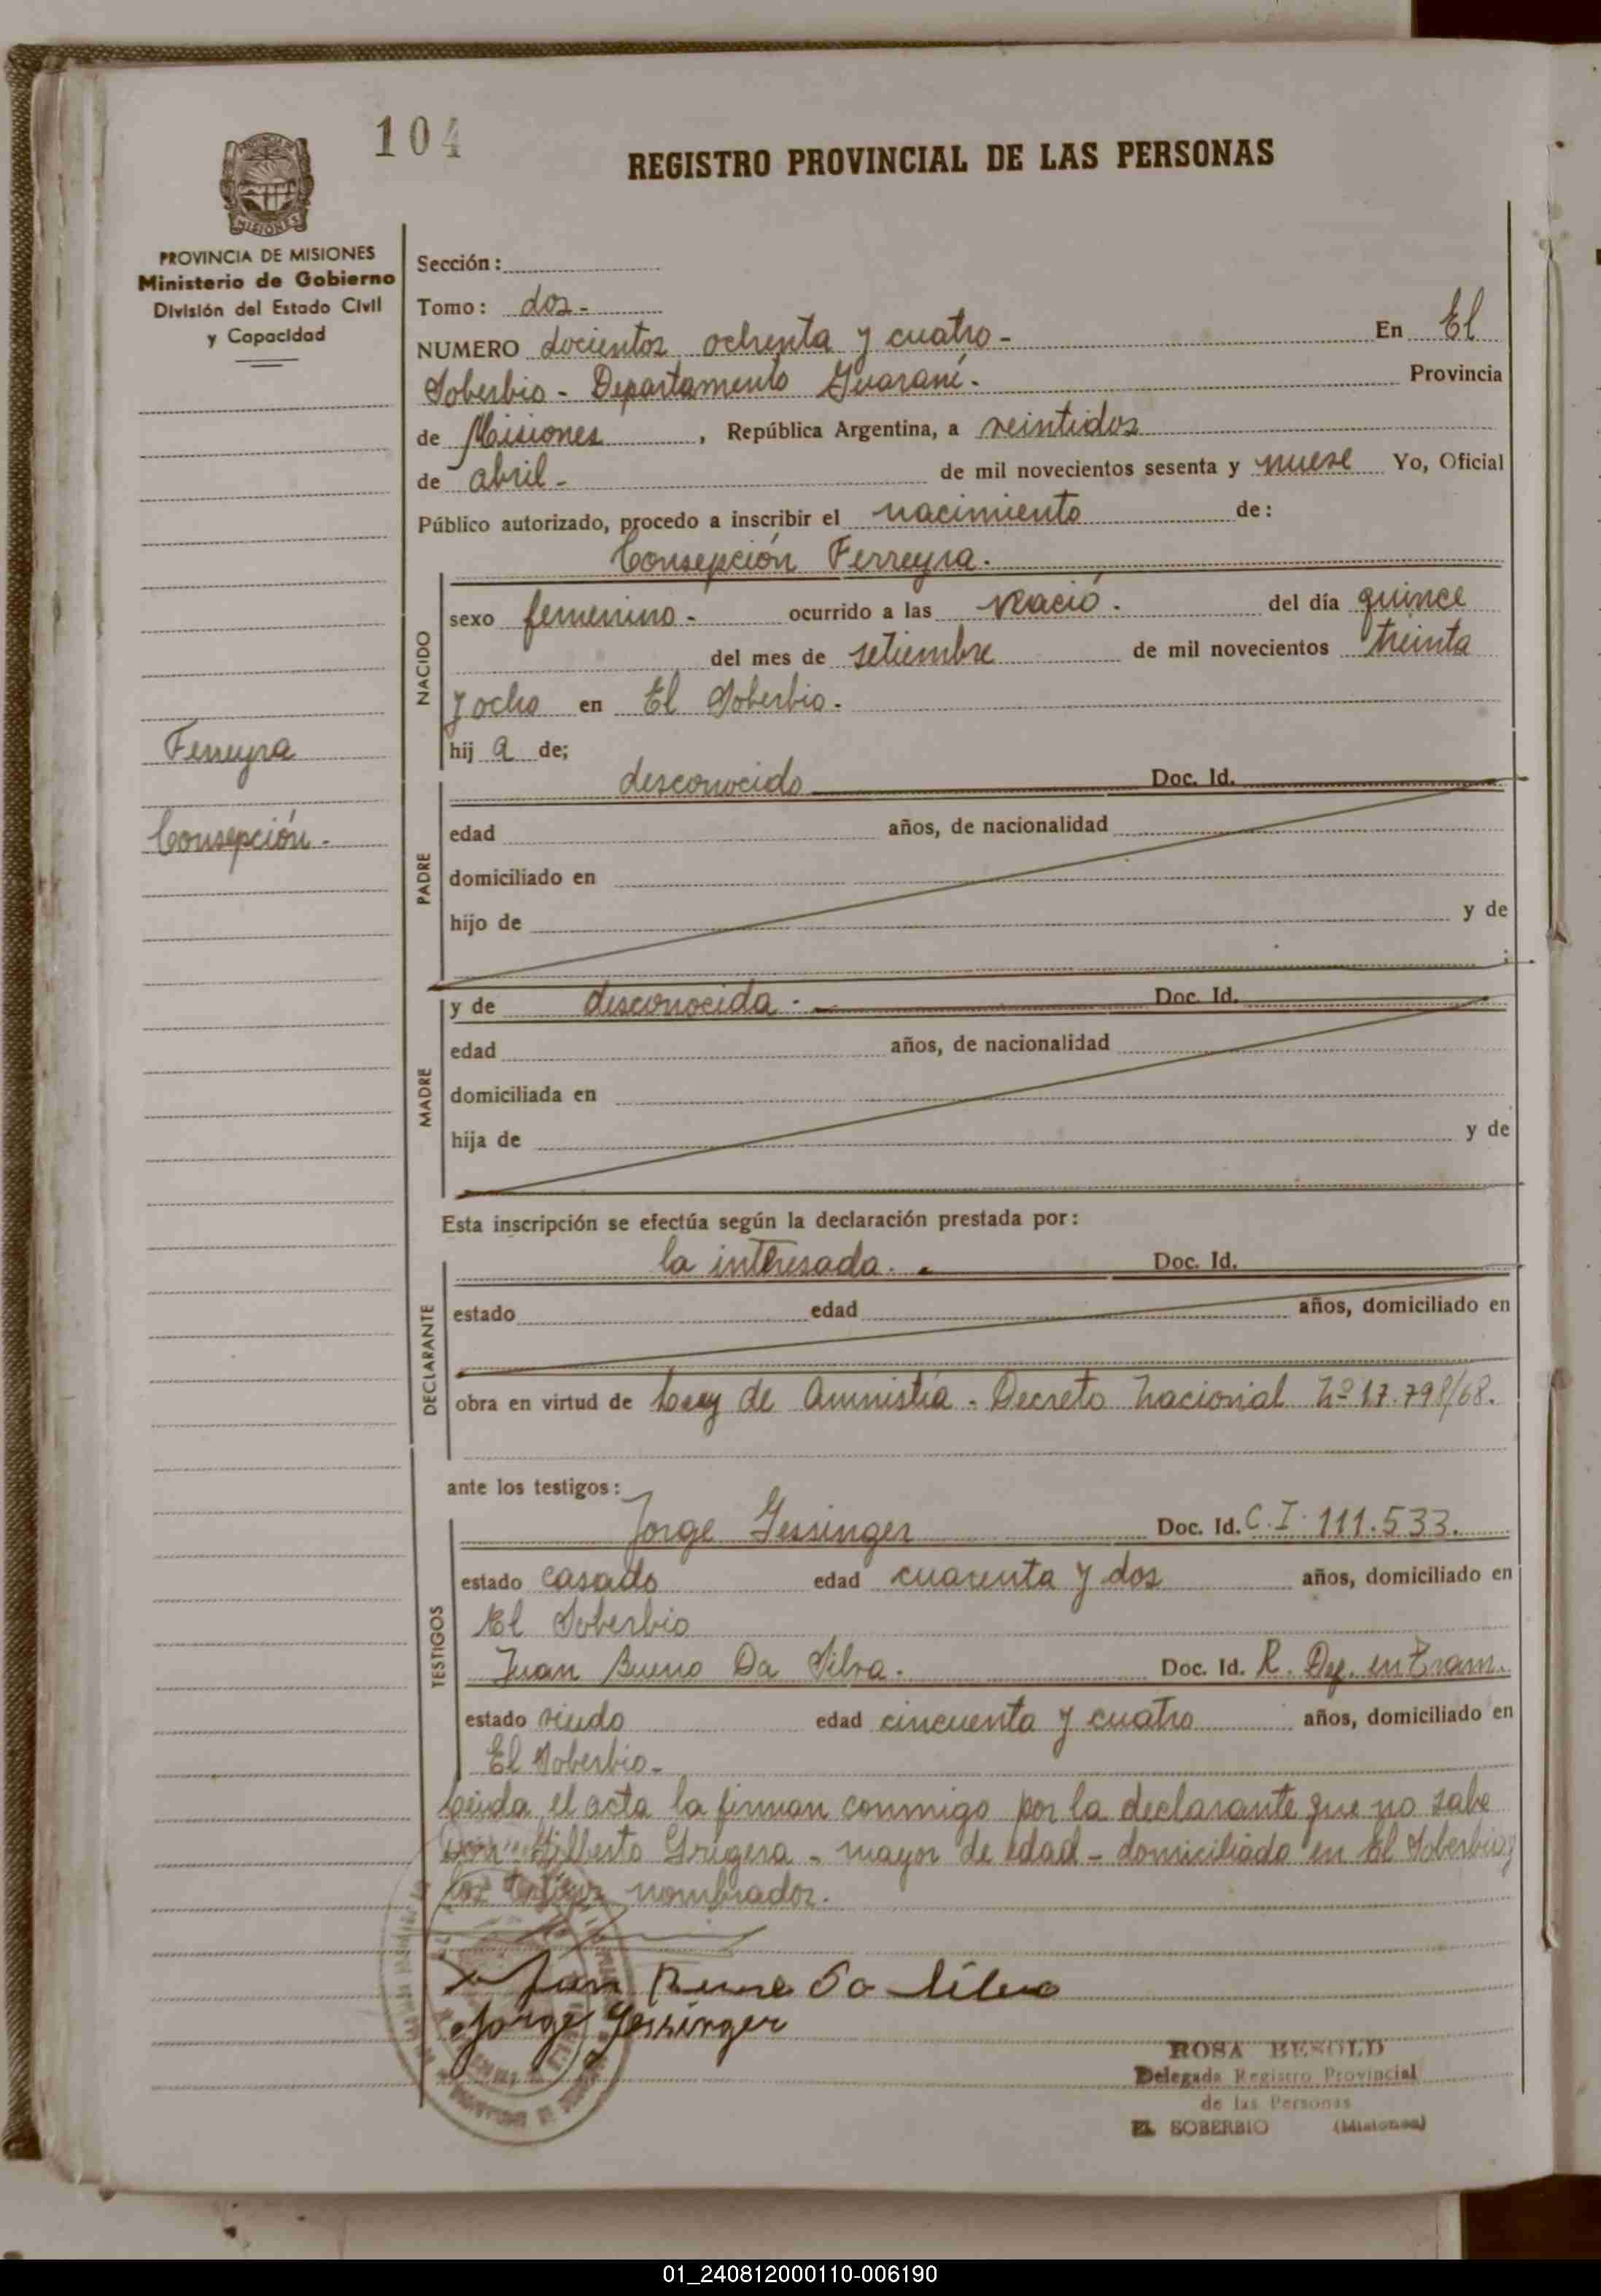 104
REGISTRO PROVINCIAL DE LAS PERSONAS
PROVINCIA DE MISIONES
Ministerio de Gobierno
División del Estado Civil
y Capacidad
Sección:
Tomo: dos-
NUMERO docientos ochenta y cuatro- En El
Soberbio - Departamento Guaraní. Provincia
de Misiones, República Argentina, a veintidos
de abril- de mil novecientos sesenta y nueve Yo, Oficial
Público autorizado, procedo a inscribir el nacimiento de:
Consepción Ferreyra.
NACIDO
sexo femenino- ocurrido a las Nació. del día quince
del mes de setiembre de mil novecientos treinta
y ocho en El Soberbio.
hij a de;
Ferreyra
Consepción-
PADRE
desconocido Doc. Id.
edad años, de nacionalidad
domiciliado en
hijo de y de
MADRE
y de desconocida. Doc. Id.
edad años, de nacionalidad
domiciliada en
hija de y de
Esta inscripción se efectúa según la declaración prestada por:
DECLARANTE
la interesada. Doc. Id.
estado edad años, domiciliado en
obra en virtud de Ley de Amnistía. Decreto Nacional Nº 17.798/68.
ante los testigos:
TESTIGOS
Jorge Gessinger Doc. Id. C.I. 111.533.
estado casado edad cuarenta y dos años, domiciliado en
El Soberbio
Juan Bueno Da Silva. Doc. Id. R. Dep. en Tram.
estado viudo edad cincuenta y cuatro años, domiciliado en
El Soberbio-
Leída el acta la firman conmigo por la declarante que no sabe
Don Gilberto Grigera - mayor de edad - domiciliado en El Soberbio y
los testigos nombrados.
Juan Bueno Da Silva
Jorge Gessinger
ROSA BESOLD
Delegada Registro Provincial
de las Personas
EL SOBERBIO (Misiones)
01_240812000110-006190